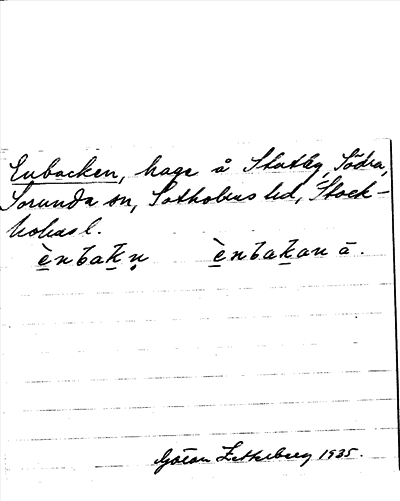 Enbacken, hage å Slutby, Södra,
Sorunda sn, Sotholms hd, Stock-
holms l.
è̱nbaḵn̥ è̱nbaḵan ā.
Göran Zetterberg 1935.